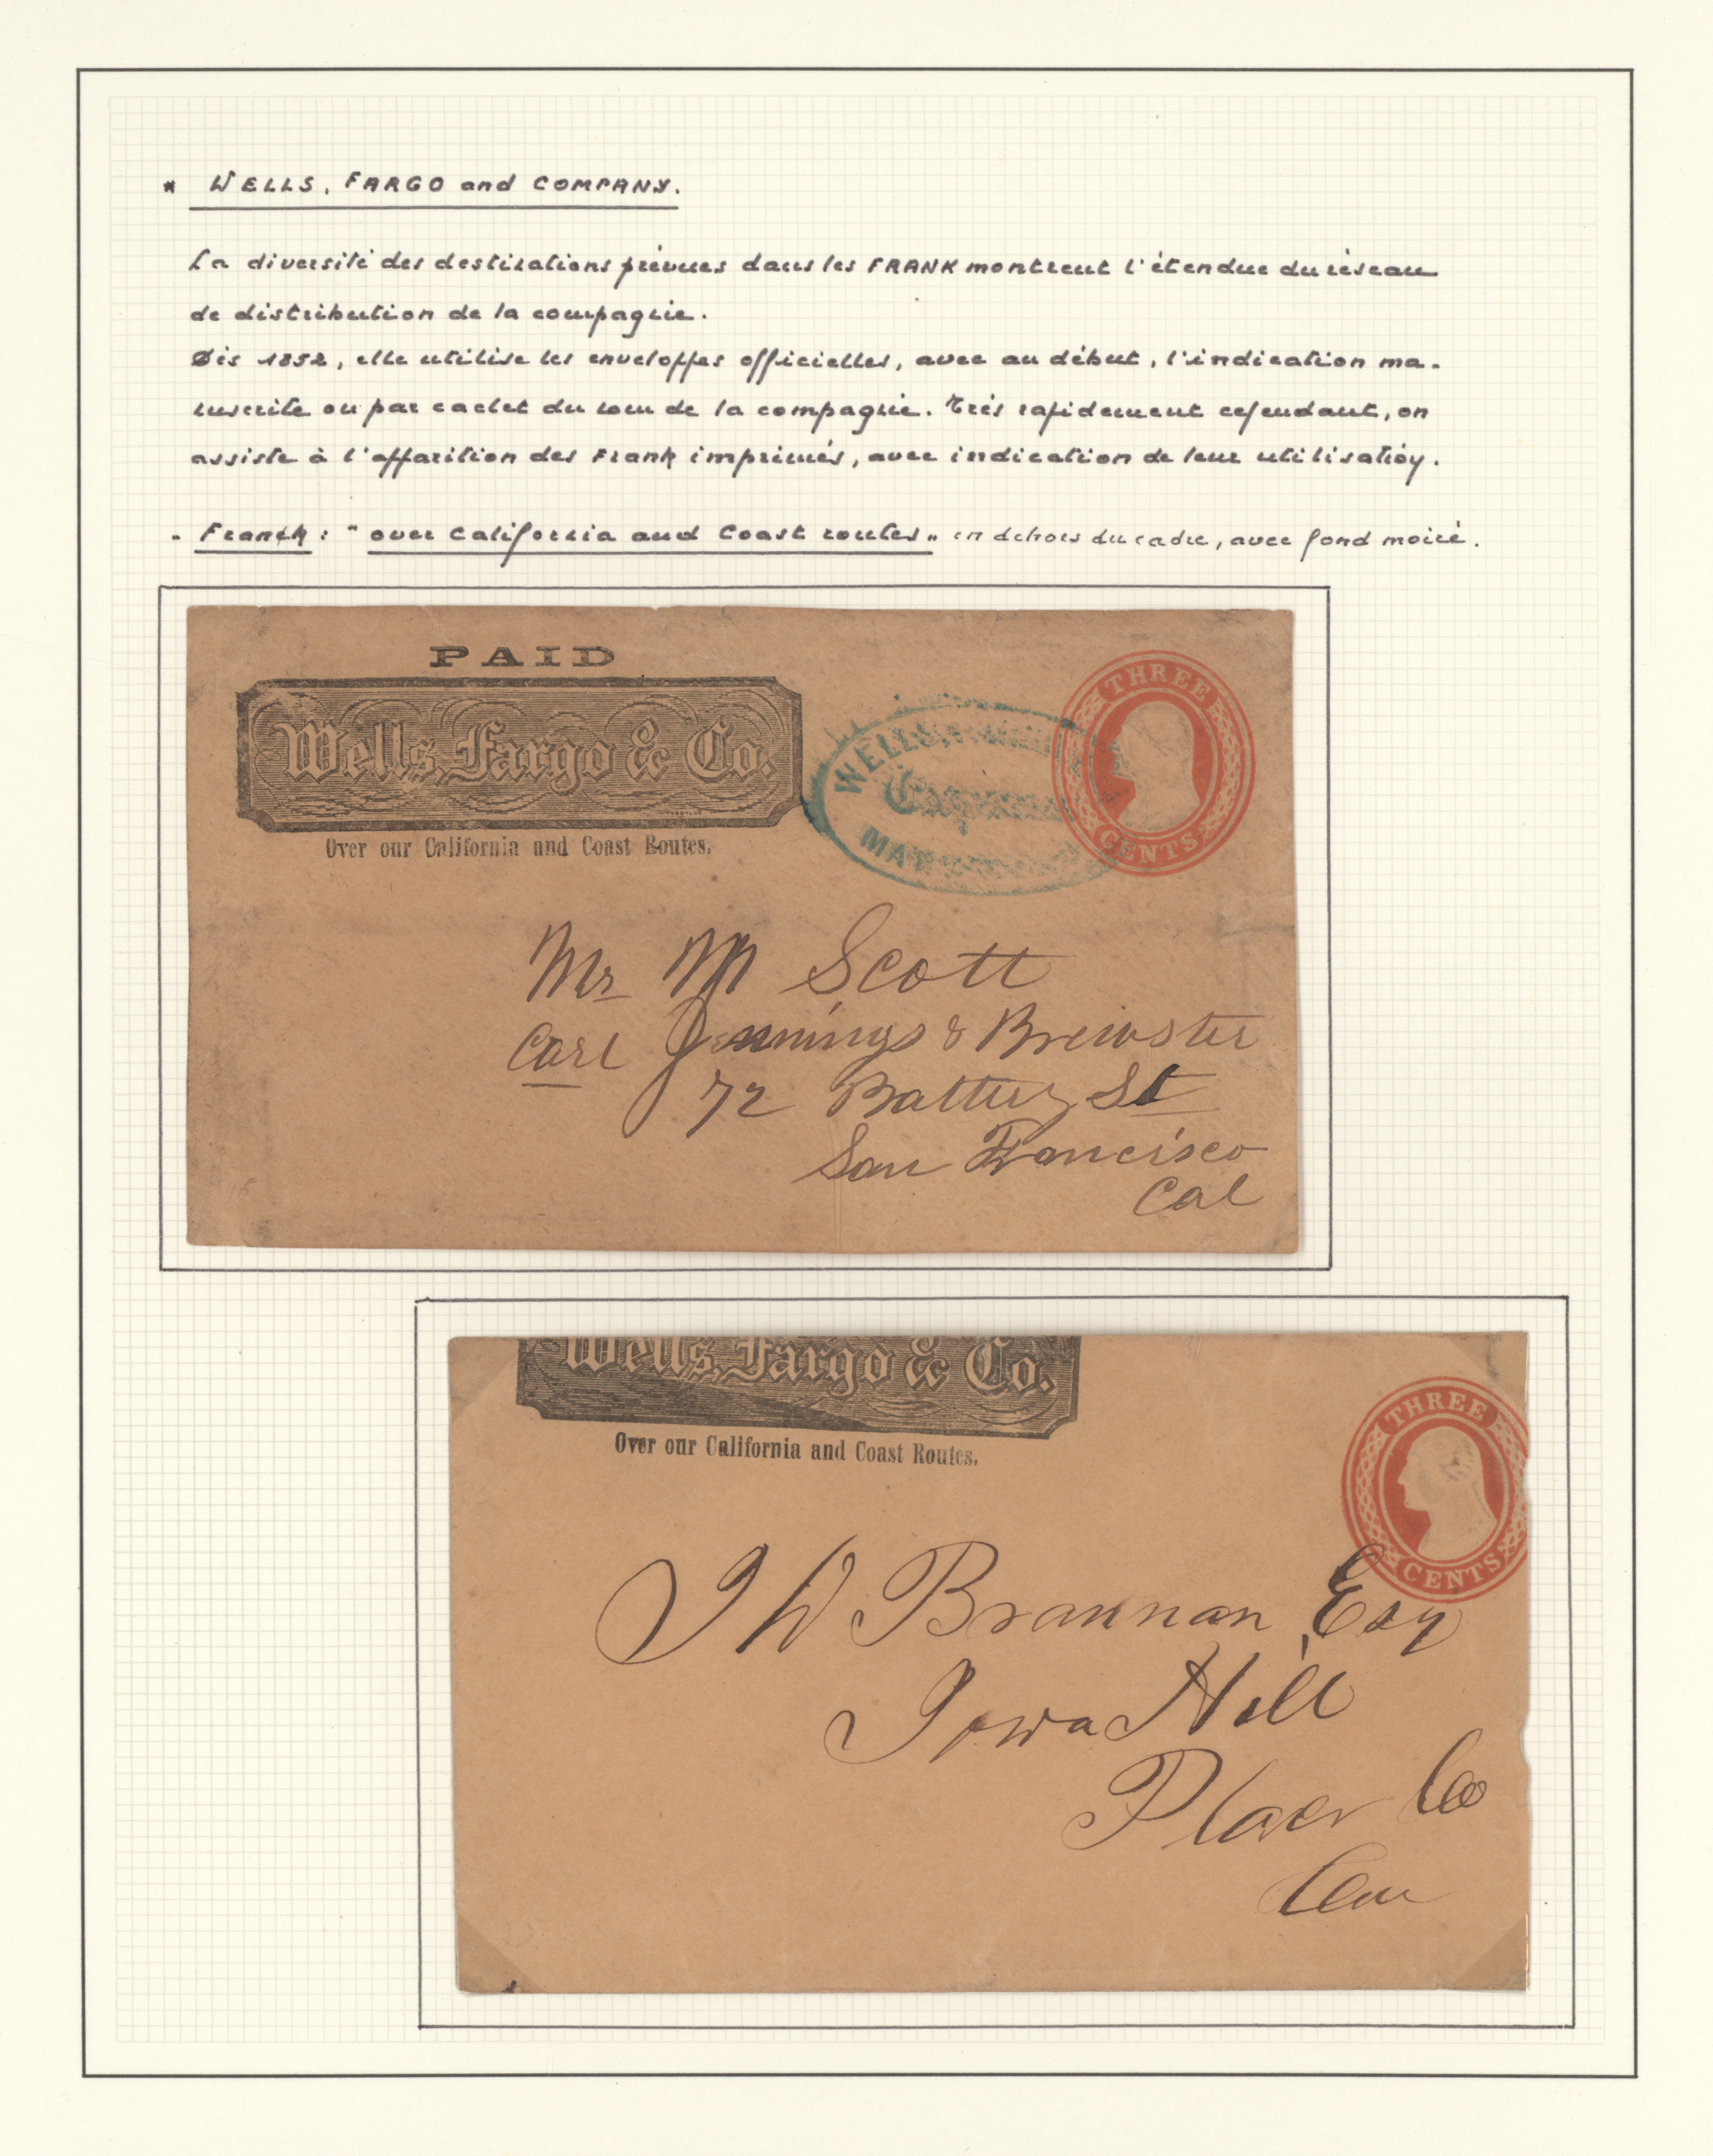 * WELLS, FARGO and COMPANY.
La diversité des destinations prévues dans les FRANK montrent l'étendue du réseau
de distribution de la compagnie.
Dès 1852, elle utilise les enveloppes officielles, avec au début, l'indication ma-
nuscrite ou par cachet du nom de la compagnie. Très rapidement cependant, on
assiste à l'apparition des Frank imprimés, avec indication de leur utilisation.
- Franck : "over California and Coast routes" en dehors du cadre, avec fond moiré.
PAID
Wells, Fargo & Co.
Over our California and Coast Routes.
WELLS,
Express
MA
THREE
CENTS
Mr M Scott
Care Jennings & Brewster
72 Battery St
San Francisco
Cal
Wells, Fargo & Co.
Over our California and Coast Routes.
THREE
CENTS
J W Brannan Esq
Iowa Hill
Placer Co